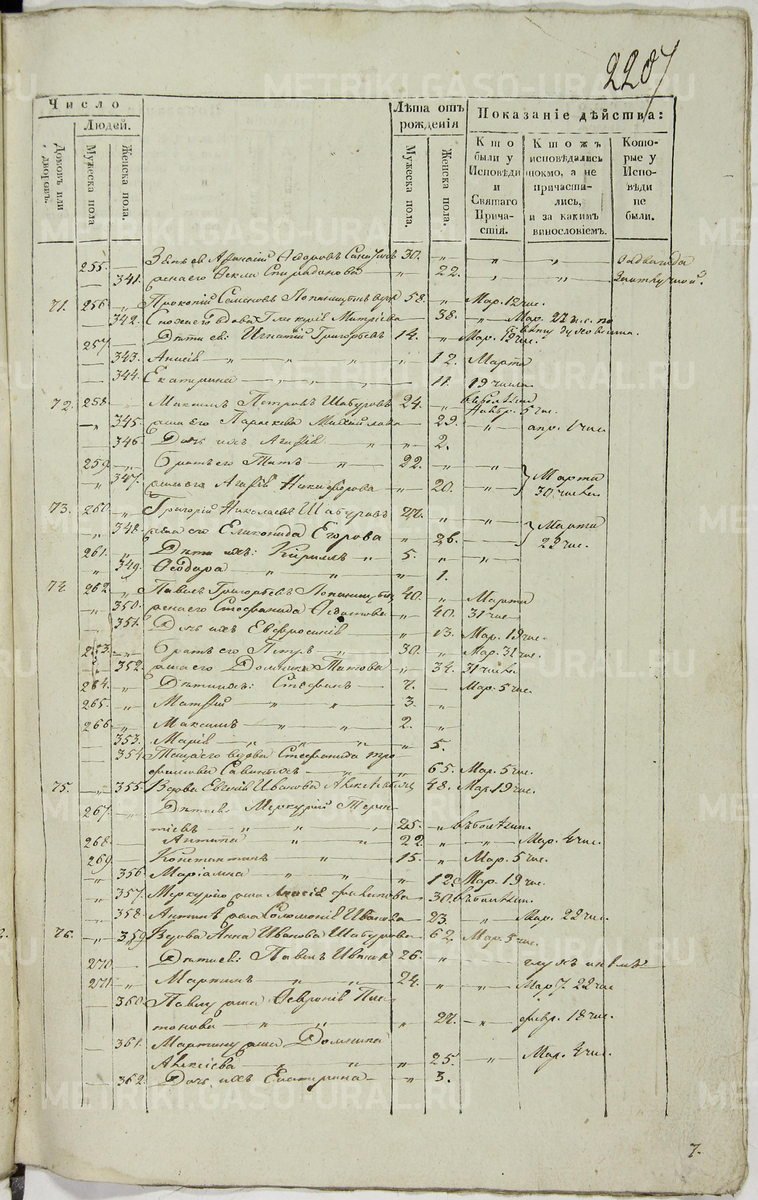 2207
Число
Людей.
Домовъ или дворовъ.
Мужеска пола
Женска пола.
Лѣта отъ рожденія
Мужеска пола.
Женска пола.
Показаніе дѣйства:
Кто были у Исповѣди и Святаго Причастія.
Ктожъ исповѣдались токмо, а не причастались, и за какимъ винословіемъ.
Которые у Исповѣди не были.
255. Зять ея Афанасій Ѳедоровъ 30. „
341. жена его Ѳекла Спиридонова 22.
71. 256. Прокопій Семеновъ 58. „ Мар. 12 чис.
342. вдова Гликерія Митріева 38. „ Мар. 22 чис. по
257. Дѣти ея: Игнатій Григорьевъ 14. „ Мар. 19 чис.
343. Анисія „ 12. Марта
344. Екатерина „ 11. 19 числа
72. 258. Максимъ Петровъ Шабуровъ 24. „
345. жена его Параскева Михайлова 29. „ апр. 1 чис
346. Дочь ихъ Агафія „ 2.
259. Братъ его Титъ „ 22. „ „ Марта
347. жена его Агафія Никифорова „ 20. „ 30 числа
73. 260. Григорій Николаевъ Шабуровъ 27. „ „ Марта
348. жена его Еликонида Егорова „ 26. „ 22 чис.
261. Дѣти ихъ: Кирилъ „ 5. „ „
349. Ѳеодора „ „ 1.
74. 262. Павелъ Григорьевъ 40. „ Марта
350. жена его Стефанида 40. 31 чис
351. Дочь ихъ Евфросинія „ 13. Мар. 19 чис.
263. братъ его Петръ „ 30. „ Мар. 31 чис.
352. жена его Домника Титова „ 34. 31 числ.
264. Дѣти ихъ: Стефанъ 7. — Мар. 5 чис.
265. Матфій „ 3. „
266. Максимъ „ 2. „
353. Марія „ „ 5.
354. Теща его вдова Стефанида Тро
фимова „ 65. Мар. 5 чис.
75. 355. Вдова Евгенія Иванова 48. Мар. 19 чис.
267. Дѣти ея: Меркурій Терен
тіевъ „ 25. „ въ болѣзни.
268. Антипа „ 22 „ „ Мар. 4 чис.
269. Константинъ „ 15. „ Мар. 5 чис.
356. Маріамна „ „ 12. Мар. 19 чис.
357. Меркурію жена 30. въ болѣзни.
358. Антипѣ жена Соломонія Иванова 23. „ Мар. 22 чис.
76. 359. Вдова Анна Иванова Шабурова 62. Мар. 5 чис.
270. Дѣти ея: Павелъ 26. „ глухъ и нѣмъ
271. Мартинъ „ 24. „ „ Мар. 22 чис
360. Павлу жена Ѳевронія Пла
тонова „ „ 27. „ февр. 18 чис.
361. Мартину жена Домника
Алексіева „ 25. „ Мар. 4 чис.
362. Дочь ихъ Екатерина „ 3.
7.
METRIKI.GASO-URAL.RU